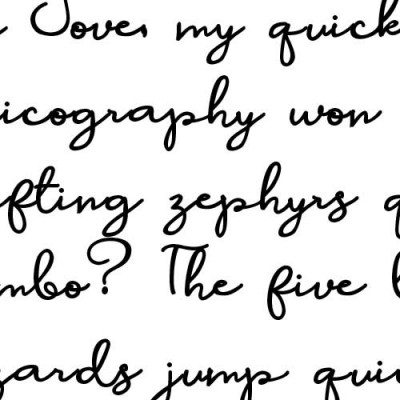 Jove, my quick
icography won
fting zephyrs q
mbo? The five b
zards jump quic